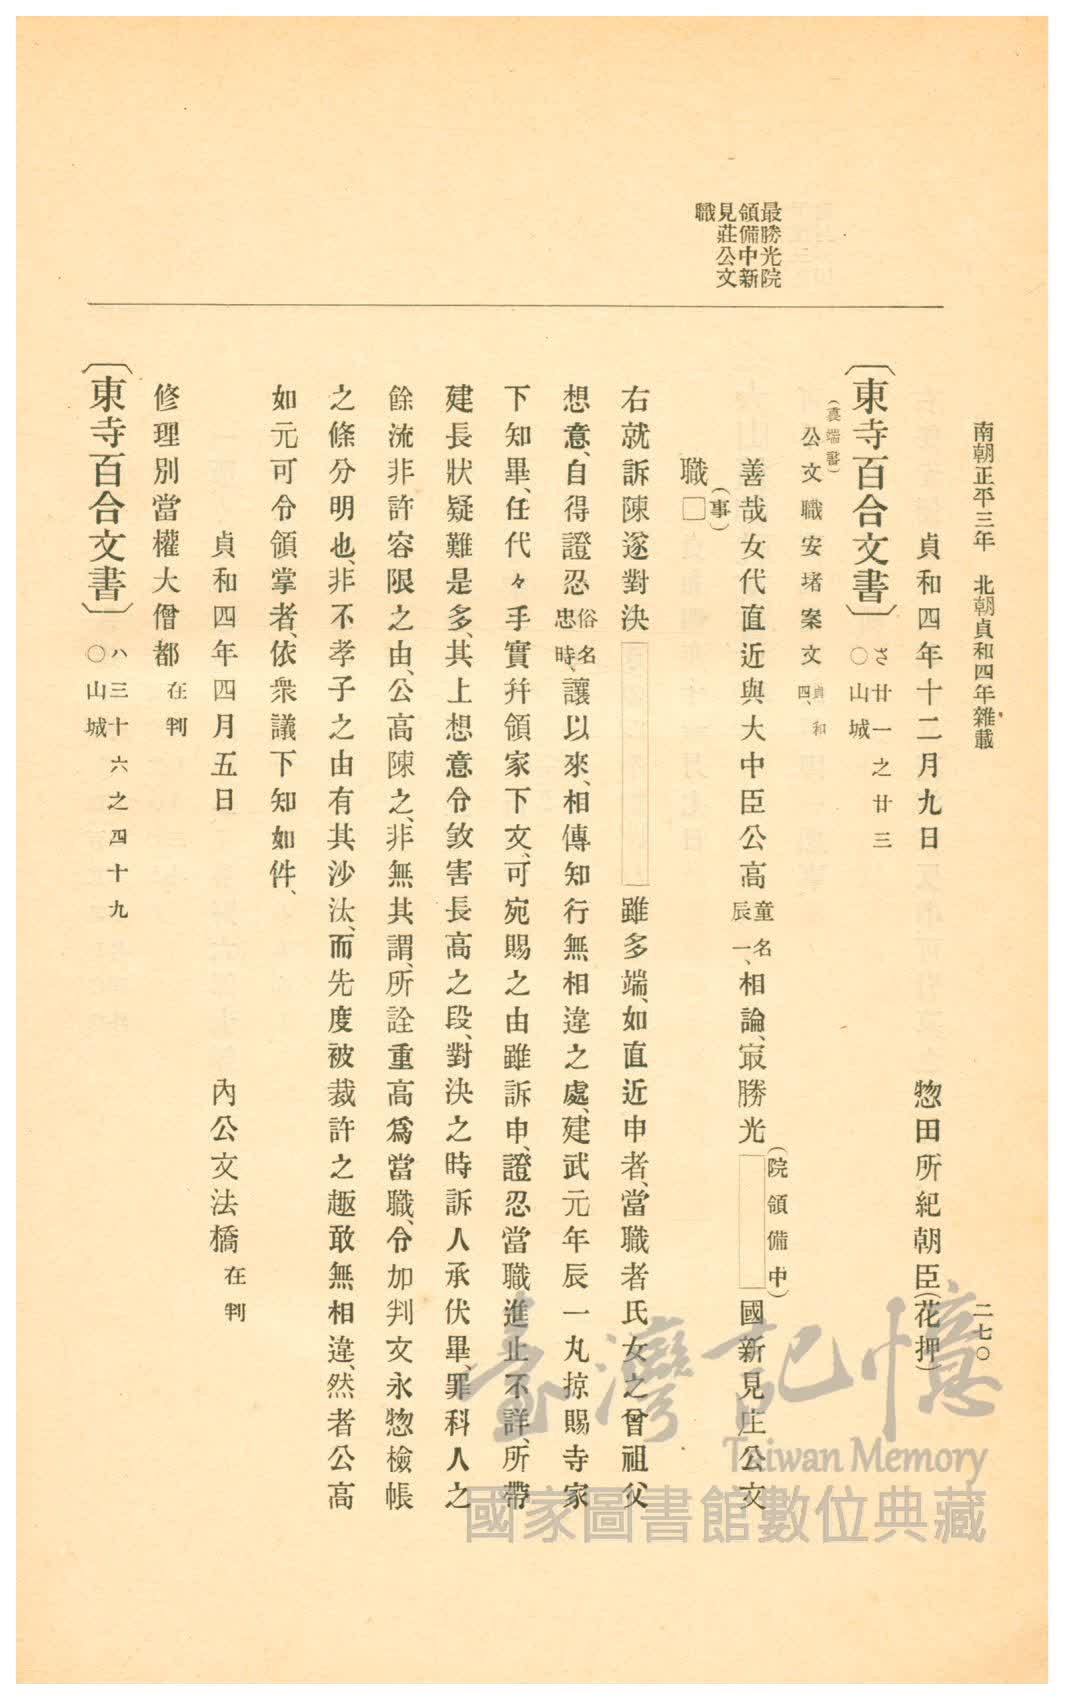 南朝正平三年　北朝貞和四年雜載
二七〇
最勝光院
領備中新
見莊公文
職
貞和四年十二月九日　惣田所紀朝臣(花押)
〔東寺百合文書〕さ廿一之廿三
〇山城
(裏端書)
公文職安堵案文貞和四、
善哉女代直近與大中臣公高童名辰一、相論、㝡勝光(院領備中)國新見庄公文
職□(事)
右就訴陳遂對決　雖多端、如直近申者、當職者氏女之曾祖父
想意、自得證忍俗名忠時、讓以來、相傳知行無相違之處、建武元年辰一丸掠賜寺家
下知畢、任代々手實幷領家下文、可宛賜之由雖訴申、證忍當職進止不詳、所帶
建長狀疑難是多、其上想意令敓害長高之段、對決之時訴人承伏畢、罪科人之
餘流非許容限之由、公高陳之、非無其謂、所詮重高爲當職、令加判文永惣檢帳
之條分明也、非不孝子之由有其沙汰、而先度被裁許之趣敢無相違、然者公高
如元可令領掌者、依衆議下知如件、
貞和四年四月五日　內公文法橋在判
修理別當權大僧都在判
〔東寺百合文書〕ハ三十六之四十九
〇山城
臺灣記憶
Taiwan Memory
國家圖書館數位典藏